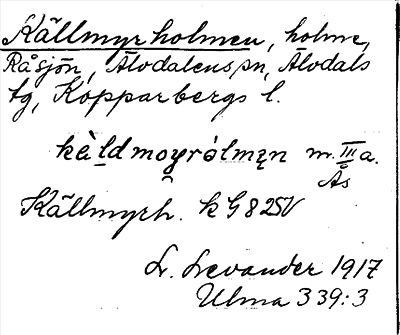 Källmyrholmen, holme,
Råsjön, Älvdalens sn, Älvdals
tg, Kopparbergs l.
kèldmoyrólmęn m. III a.
Ås
Källmyrh. k G 8 25V
L. Levander 1917
Ulma 339:3